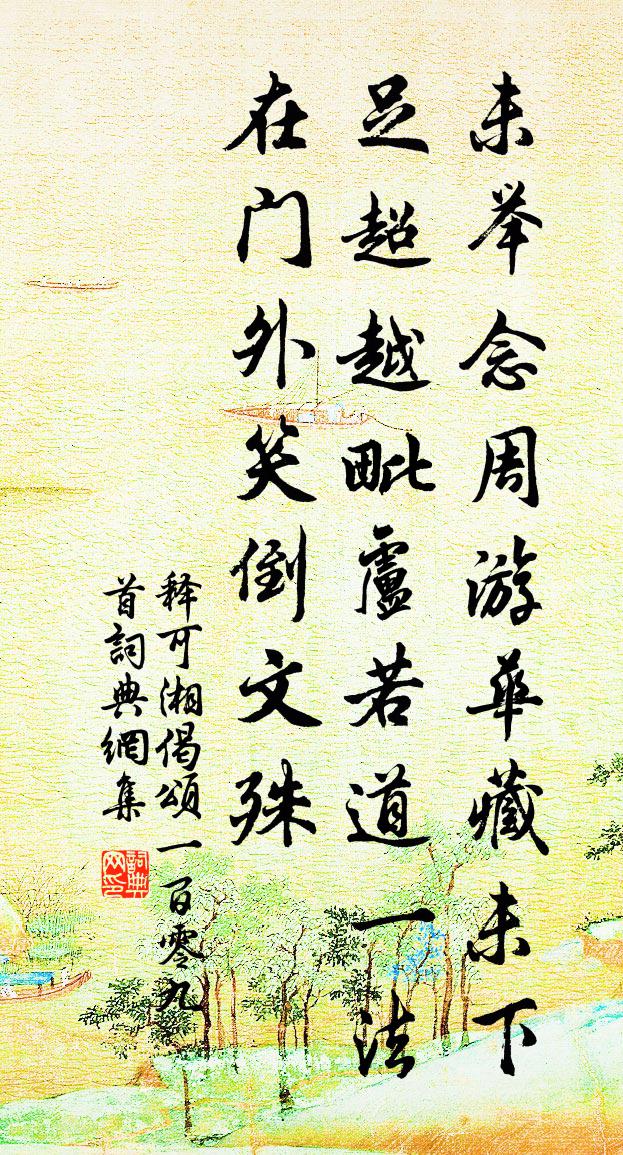 未举念周游华藏未下
足超越毗盧若道一法
在门外笑倒文殊
释可湘偈頌一百零九
首詞典網集
詞典网印